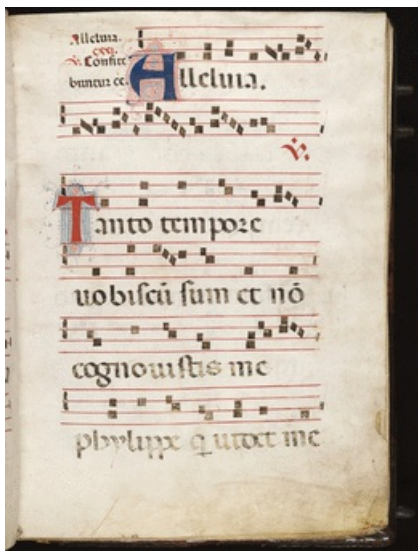 Alleluia.
℣. Confite
buntur ce.
Alleluia.
℣.
Tanto tempore
uobiscũ sum et nõ
cognouistis me
phylippe q uidet me